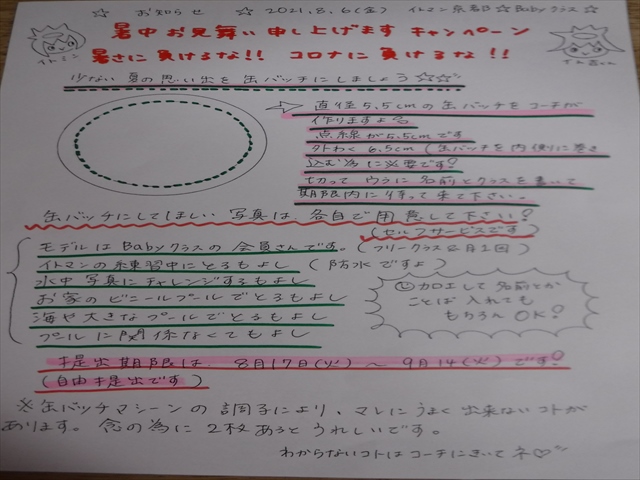 ☆ お知らせ ☆ 2021.8.6(金) イトマン京都 ☆Babyクラス☆
暑中お見舞い申し上げます キャンペーン
暑さに負けるな!! コロナに負けるな!!
イトミン
イトミンくん
少ない夏の思い出を缶バッチにしましょう☆☆
直径5.5cmの缶バッチをコーチが
作りますよ
点線が5.5cmです
外わく 6.5cm (缶バッチを内側に巻き
込む為に必要です!
切って ウラに名前とクラスを書いて
期限内に持って来て下さい。
缶バッチにしてほしい写真は、各自で用意して下さい!
(セルフサービスです)
モデルはBabyクラスの会員さんです。(フリークラス 月1回)
イトマンの練習中にとるもよし (防水ですよ)
水中写真にチャレンジするもよし
お家のビニールプールでとるもよし
海や大きなプールでとるもよし
プールに関係なくてもよし
加工して名前とか
ことば入れても
もちろんOK!
提出期限は、8月17日(火)~9月14(火)です!
(自由提出です)
※缶バッチマシーンの調子により、マレにうまく出来ないコトが
あります。念の為に2枚あるとうれしいです。
わからないコトはコーチにきいてネ♡